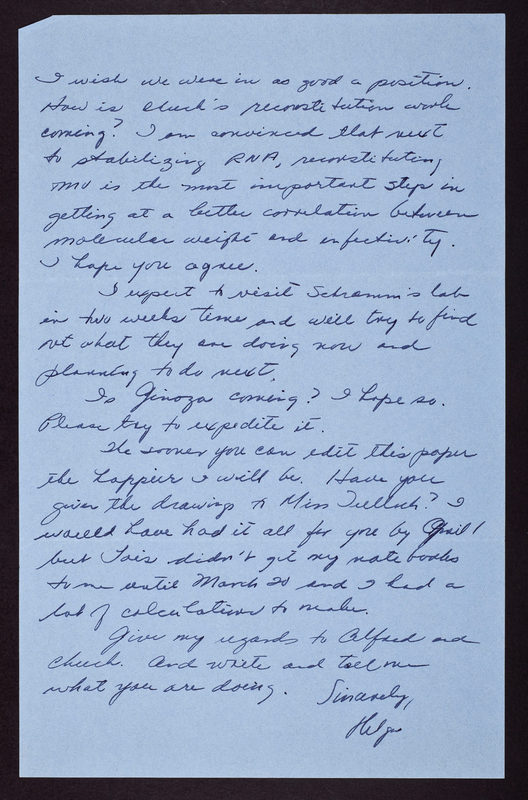 I wish we were in as good a position.
How is Chuck's reconstitution work
coming? I am convinced that next
to stabilizing RNA, reconstituting
MV is the most important step in
getting at a better correlation between
molecular weight and infectivity.
I hope you agree.
I expect to visit Schramm's lab
in two weeks time and will try to find
out what they are doing now and
planning to do next.
Is Ginoza coming? I hope so.
Please try to expedite it.
The sooner you can edit this paper
the happier I will be. Have you
given the drawings to Miss Tulloch? I
would have had it all for you by April 1
but Lois didn't get my notebooks
to me until March 20 and I had a
lot of calculations to make.
Give my regards to Alfred and
Chuck. And write and tell me
what you are doing. Sincerely,
Helga